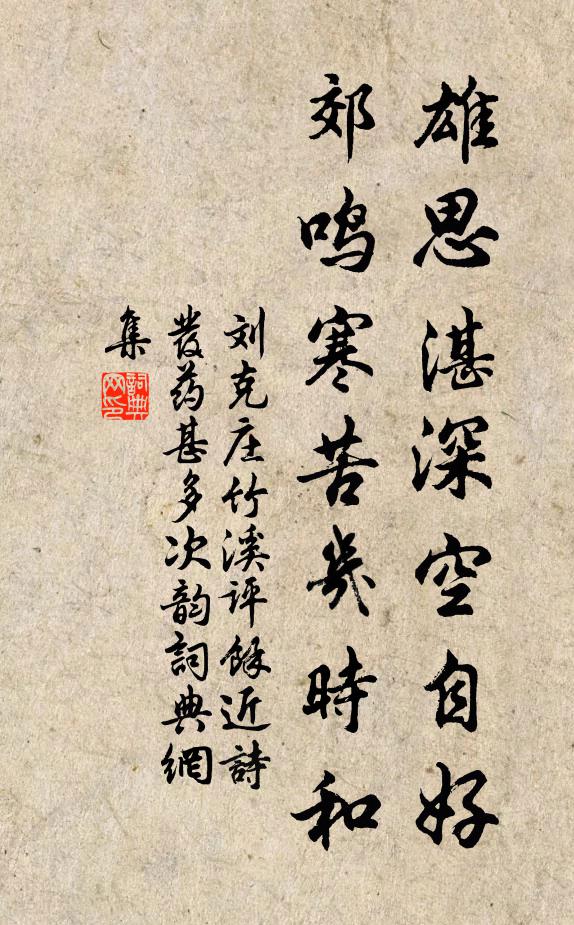 雄思湛深空自好
郊鸣寒苦几時和
刘克庄竹溪评馀近詩
發药甚多次韵詞典網
集
詞典
网印